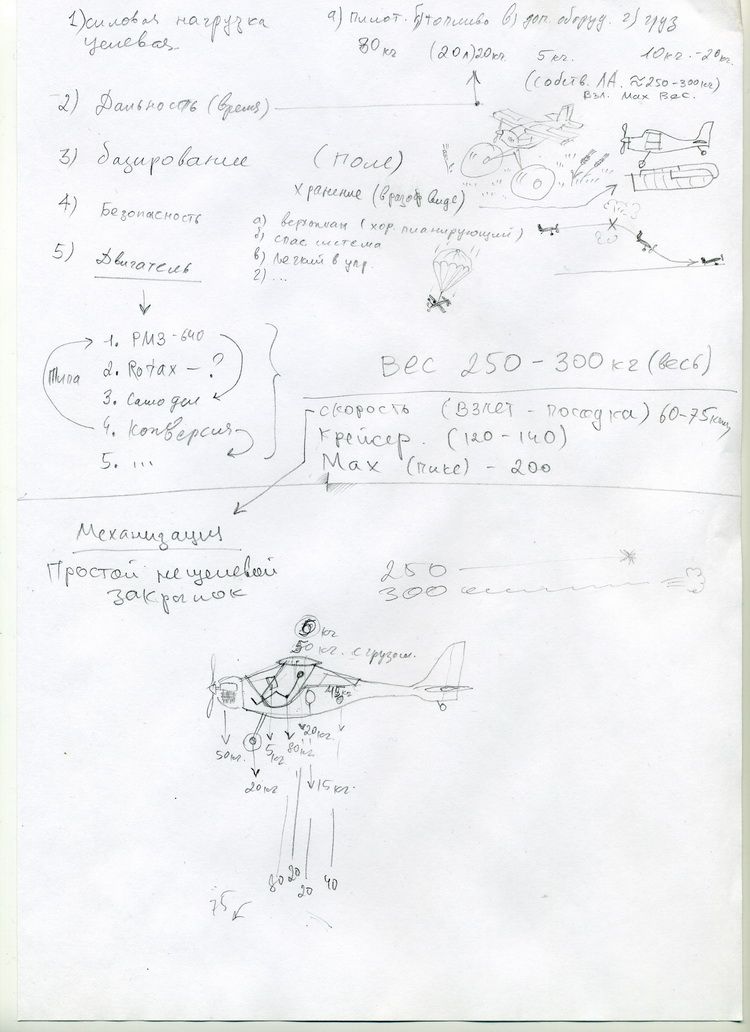 1) силовая нагрузка а) пилот. б) топливо в) доп. оборуд. г) груз
целевая.
80кг (20л) 20кг. 5кг. 10кг.-20кг.
(собств. ЛА. ≈250-300кг)
Взл. Max Вес.
2) Дальность (время)
3) базирование (поле)
хранение (в разобр виде)
4) Безопасность
а) верхоплан (хор. планирующий)
б) спас система
в) Легкий в упр.
г) ...
5) Двигатель
Типа
1. РМЗ-640
2. Rotax - ?
3. Самодел
4. Конверсия
5. ...
Вес 250-300кг (весь)
скорость (Взлет - посадка) 60-75км/ч
Крейсер. (120-140)
Max (пике) - 200
Механизация
Простой не щелевой
закрылок
250
300
5 кг
50 кг. с грузом.
45кг
20кг.
50кг. 5кг 80кг.
20кг 15кг.
80 20 20 40
75